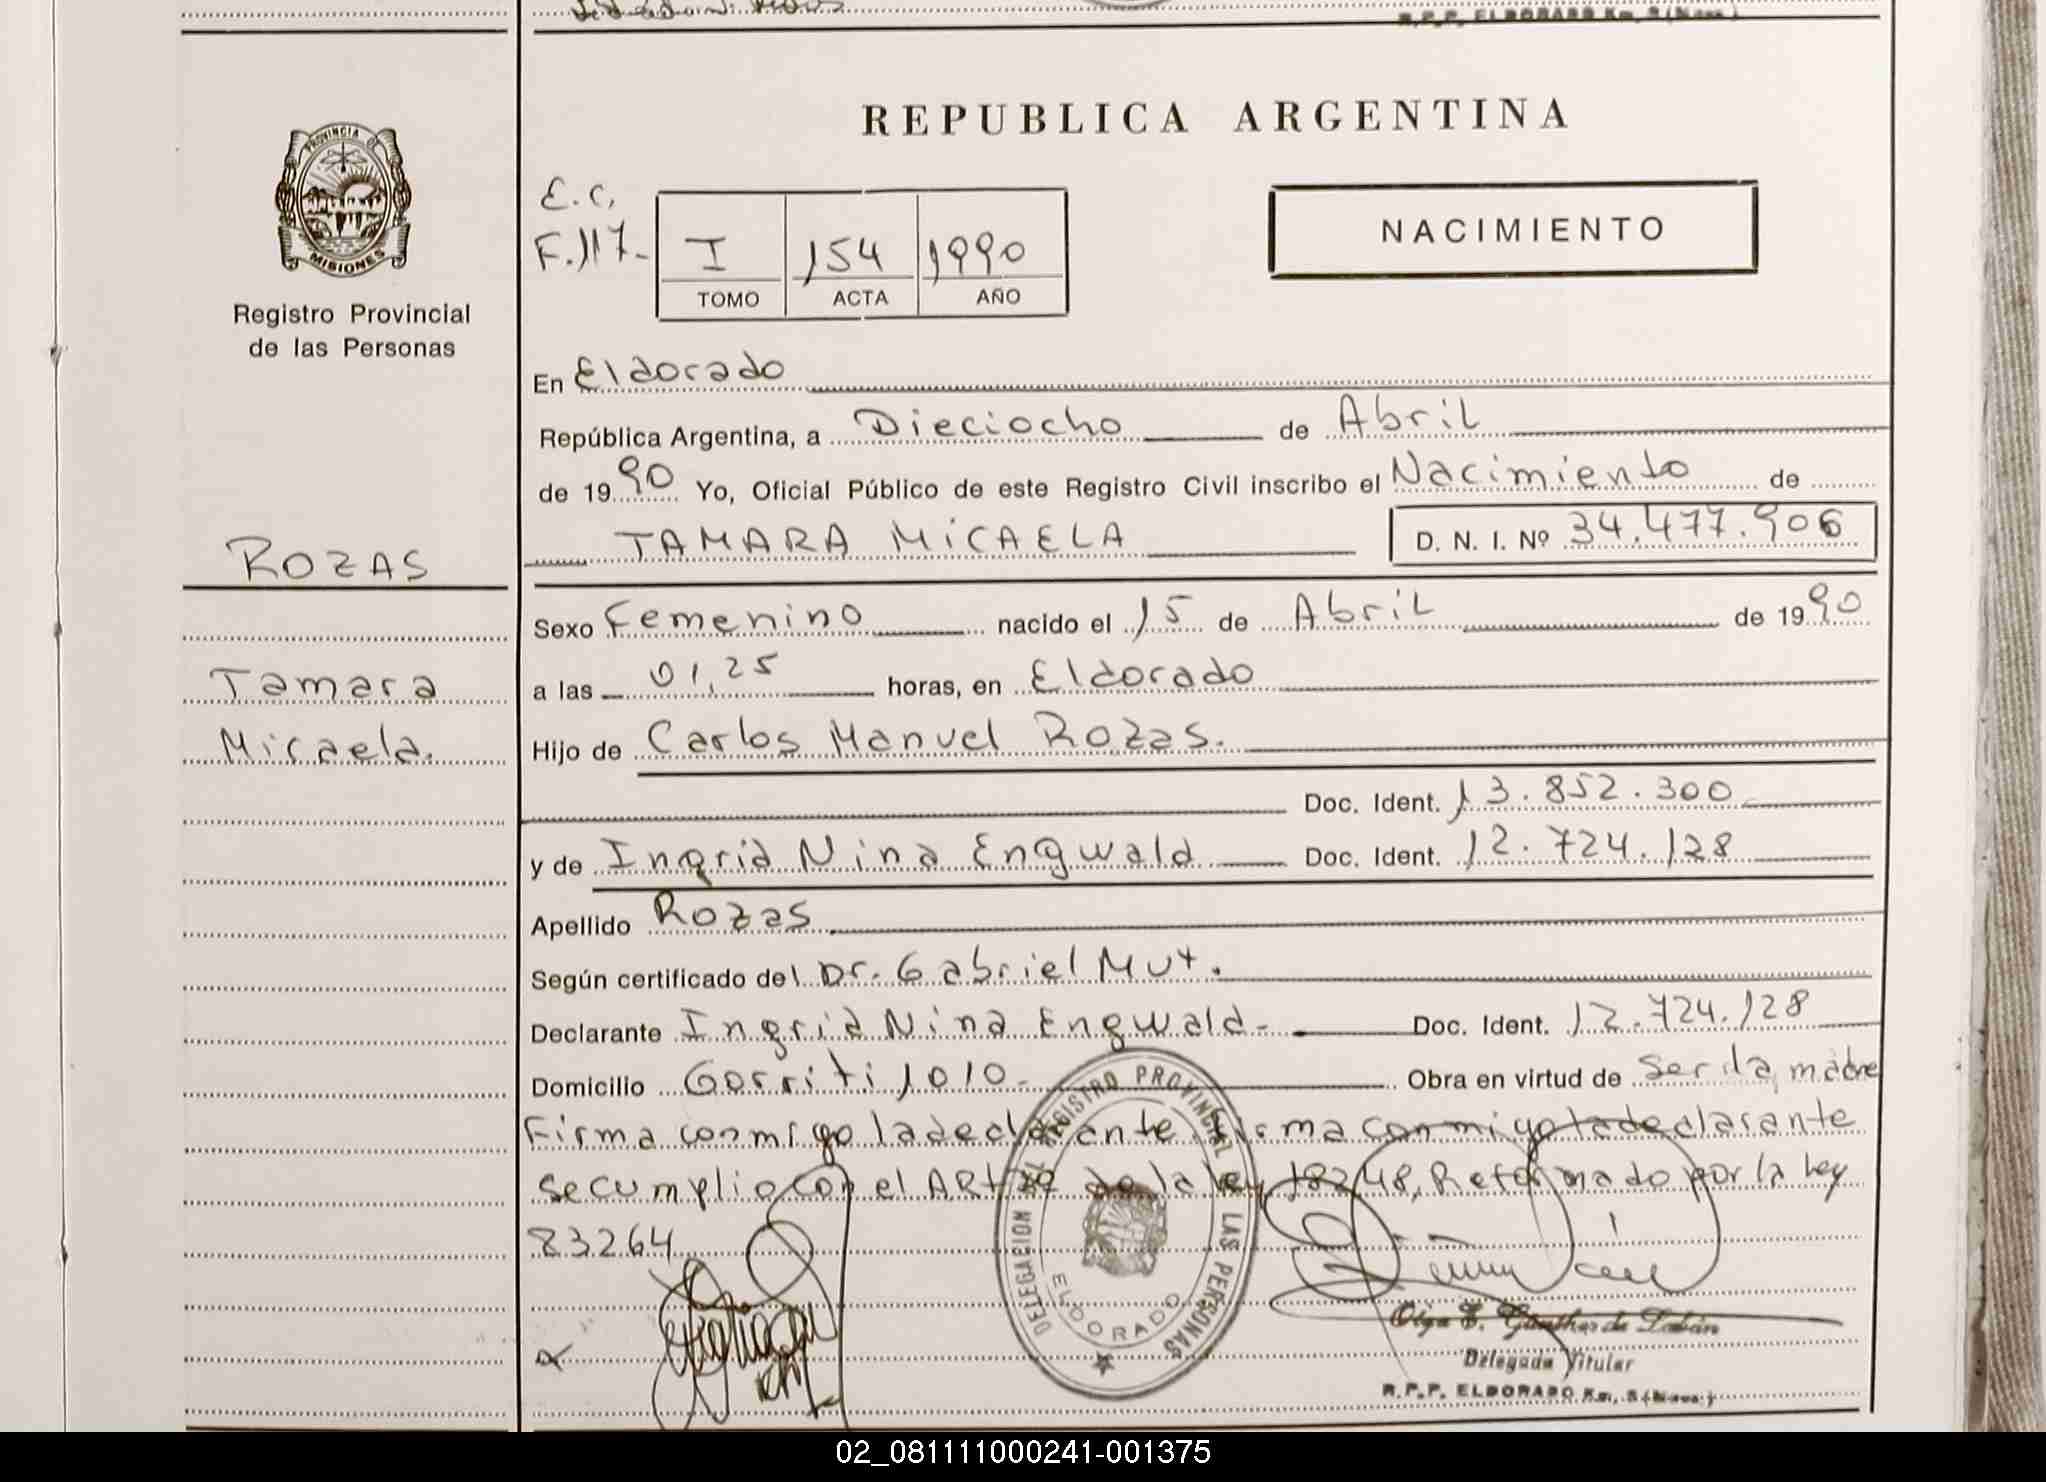 R.P.P. ELDORADO Km. 9 (Mnes.)
REPUBLICA ARGENTINA
PROVINCIA DE
MISIONES
Registro Provincial
de las Personas
E.C.
F.117.-
I 154 1990
TOMO ACTA AÑO
NACIMIENTO
En Eldorado
República Argentina, a Dieciocho de Abril
de 1990 Yo, Oficial Público de este Registro Civil inscribo el Nacimiento de
TAMARA MICAELA D. N. I. Nº 34.477.906
ROZAS
Sexo Femenino nacido el 15 de Abril de 1990
Tamara
a las 01,25 horas, en Eldorado
Micaela.
Hijo de Carlos Manuel Rozas.
Doc. Ident. 13.852.300
y de Ingrid Nina Engwald Doc. Ident. 12.724.128
Apellido Rozas
Según certificado del Dr. Gabriel Mut.
Declarante Ingrid Nina Engwald- Doc. Ident. 12.724.128
Domicilio Gorriti 1010- Obra en virtud de ser la madre
Firma conmigo la declarante Firma conmigo la declarante
se cumplio con el ART de la ley 18248, Reformado por la ley
23264
DELEGACION DEL REGISTRO PROVINCIAL DE LAS PERSONAS
ELDORADO
Olga E. Günther de Labán
Delegada Titular
R.P.P. ELDORADO Km. 9 (Mnes.)
02_081111000241-001375